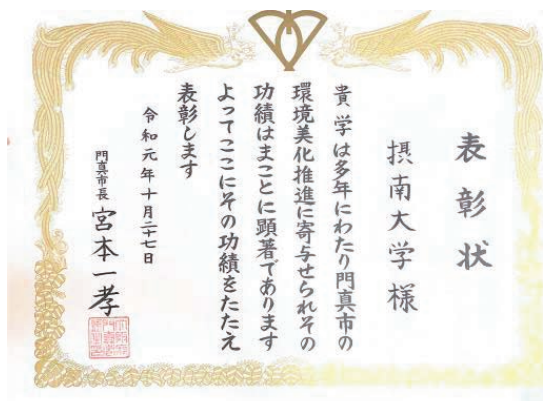 表彰状
摂南大学様
貴学は多年にわたり門真市の
環境美化推進に寄与せられその
功績はまことに顕著であります
よってここにその功績をたたえ
表彰します
令和元年十月二十七日
門真市長 宮本一孝